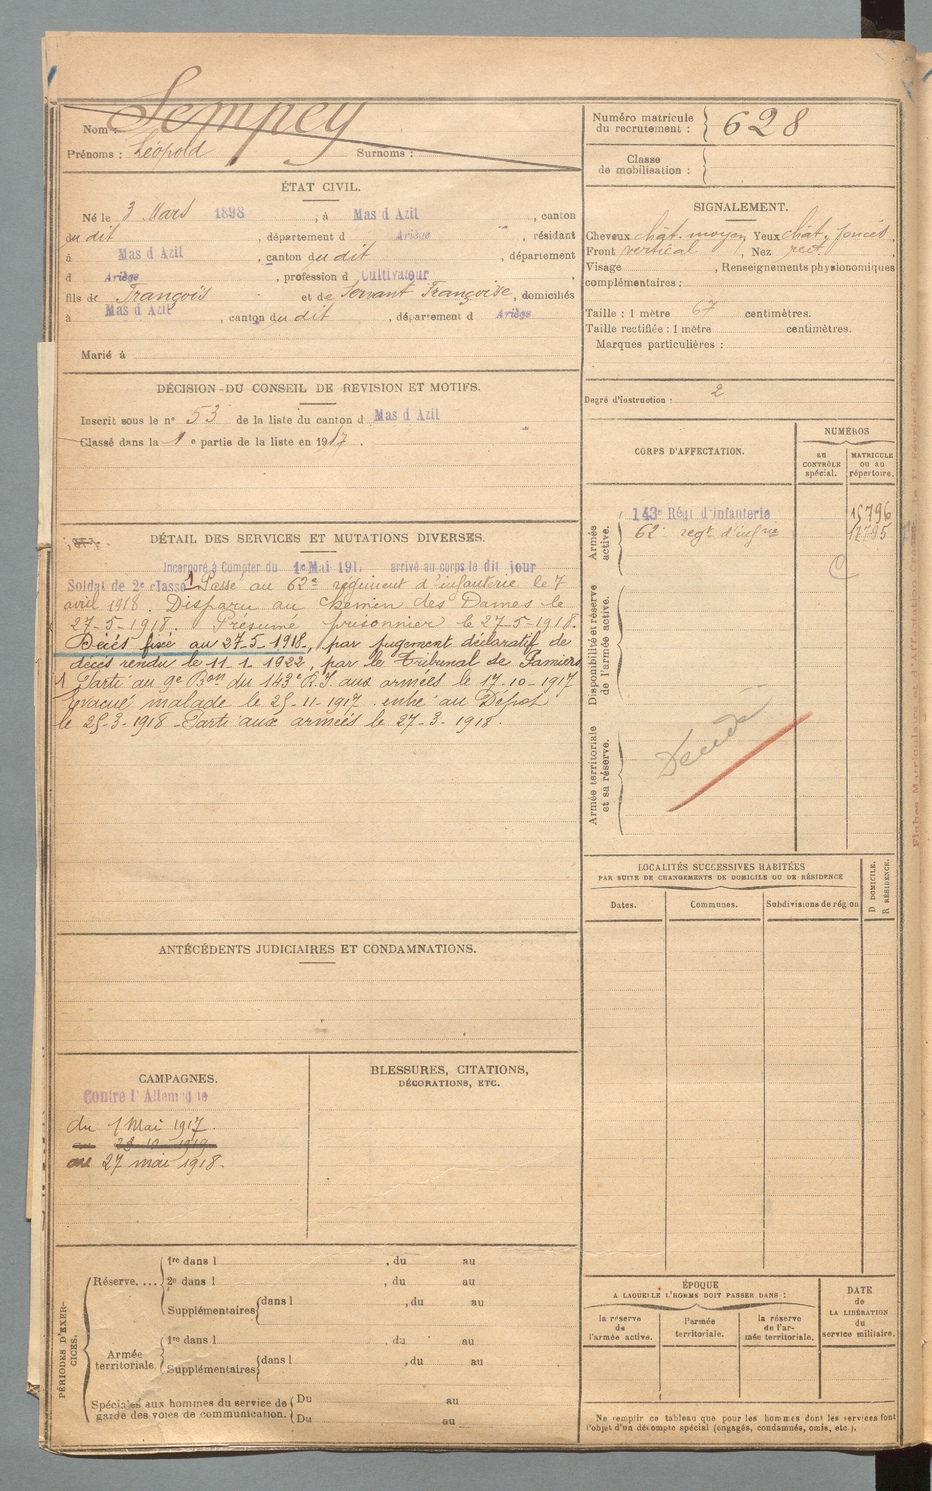 Nom : Sempey
Prénoms : Léopold Surnoms :
Numéro matricule du recrutement : 628
Classe de mobilisation :
ÉTAT CIVIL.
Né le 3 Mars 1898, à Mas d Azil, canton
du dit, département d Ariège, résidant
à Mas d Azil, canton du dit, département
d Ariège, profession d Cultivateur
fils de François et de Servant Françoise, domiciliés
à Mas d Azil, canton du dit, département d Ariège
Marié à
SIGNALEMENT.
Cheveux chât. moyen Yeux chât. foncés,
Front vertical, Nez rect.
Visage , Renseignements physionomiques
complémentaires :
Taille : 1 mètre 67 centimètres.
Taille rectifiée : 1 mètre centimètres.
Marques particulières :
Degré d'istruction : 2
DÉCISION DU CONSEIL DE REVISION ET MOTIFS.
Inscrit sous le n° 53 de la liste du canton d Mas d Azil
Classé dans la 1 e partie de la liste en 1917.
CORPS D'AFFECTATION.
NUMÉROS
AU CONTRÔLE spécial.
MATRICULE OU AU répertoire.
Armée active.
143e Régt d'infanterie 15796
62e regt d'infrie
Disponibilité et réserve de l'armée active.
Armée territoriale et sa réserve.
DÉTAIL DES SERVICES ET MUTATIONS DIVERSES.
Incorporé à Compter du 1e Mai 191. arrivé au corps le dit jour
Soldat de 2e classe 1 Passé au 62e régiment d'infanterie le 7
avril 1918. Disparu au Chemin des Dames le
27-5-1918. Présumé prisonnier le 27-5-1918.
Décès fixé au 27-5-1918, par jugement déclaratif de
décès rendu le 11-1-1922, par le Tribunal de Pamiers
1 Parti au 9e Bon du 143e R.I. aux armées le 17-10-1917
Evacué malade le 25-11-1917. entré au Dépot
le 25-3-1918 - Parti aux armées le 27-3-1918.
LOCALITÉS SUCCESSIVES HABITÉES
PAR SUITE DE CHANGEMENTS DE DOMICILE OU DE RÉSIDENCE
Dates. Communes. Subdivisions de région
D DOMICILE.
R RÉSIDENCE.
ANTÉCÉDENTS JUDICIAIRES ET CONDAMNATIONS.
CAMPAGNES.
Contre l'Allemagne
du 1 Mai 1917.
au 27 mai 1918.
BLESSURES, CITATIONS,
DÉCORATIONS, ETC.
PÉRIODES D'EXERCICES.
Réserve....
1re dans l , du au
2e dans l , du au
Supplémentaires dans l , du au
Armée territoriale.
1re dans l du au
Supplémentaires dans l , du au
Spéciales aux hommes du service de garde des voies de communication.
Du au
Du au
ÉPOQUE
A LAQUELLE L'HOMME DOIT PASSER DANS :
la réserve de l'armée active.
l'armée territoriale.
la réserve de l'armée territoriale.
DATE
de
LA LIBÉRATION
du
service militaire.
Ne remplir ce tableau que pour les hommes dont les services font
l'objet d'un décompte spécial (engagés, condamnés, omis, etc.).